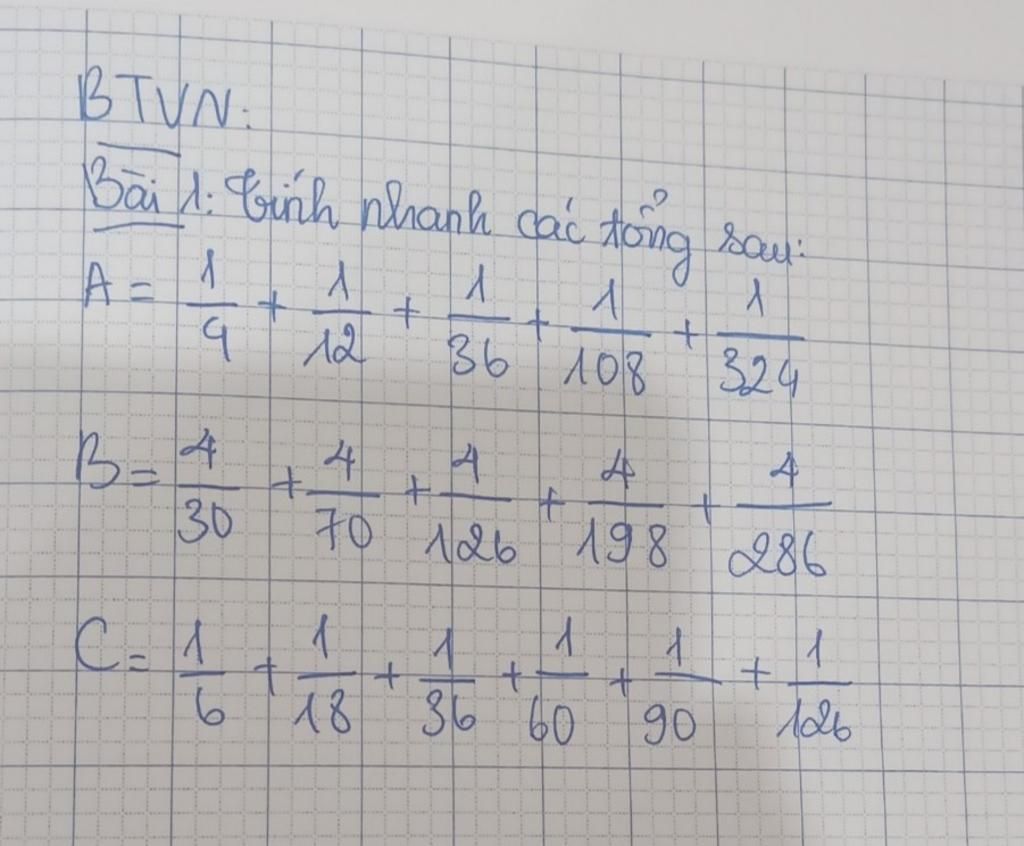 BTVN:
Bài 1: tính nhanh các tổng sau:
A = 1/4 + 1/12 + 1/36 + 1/108 + 1/324
B = 4/30 + 4/70 + 4/126 + 4/198 + 4/286
C = 1/6 + 1/18 + 1/36 + 1/60 + 1/90 + 1/126